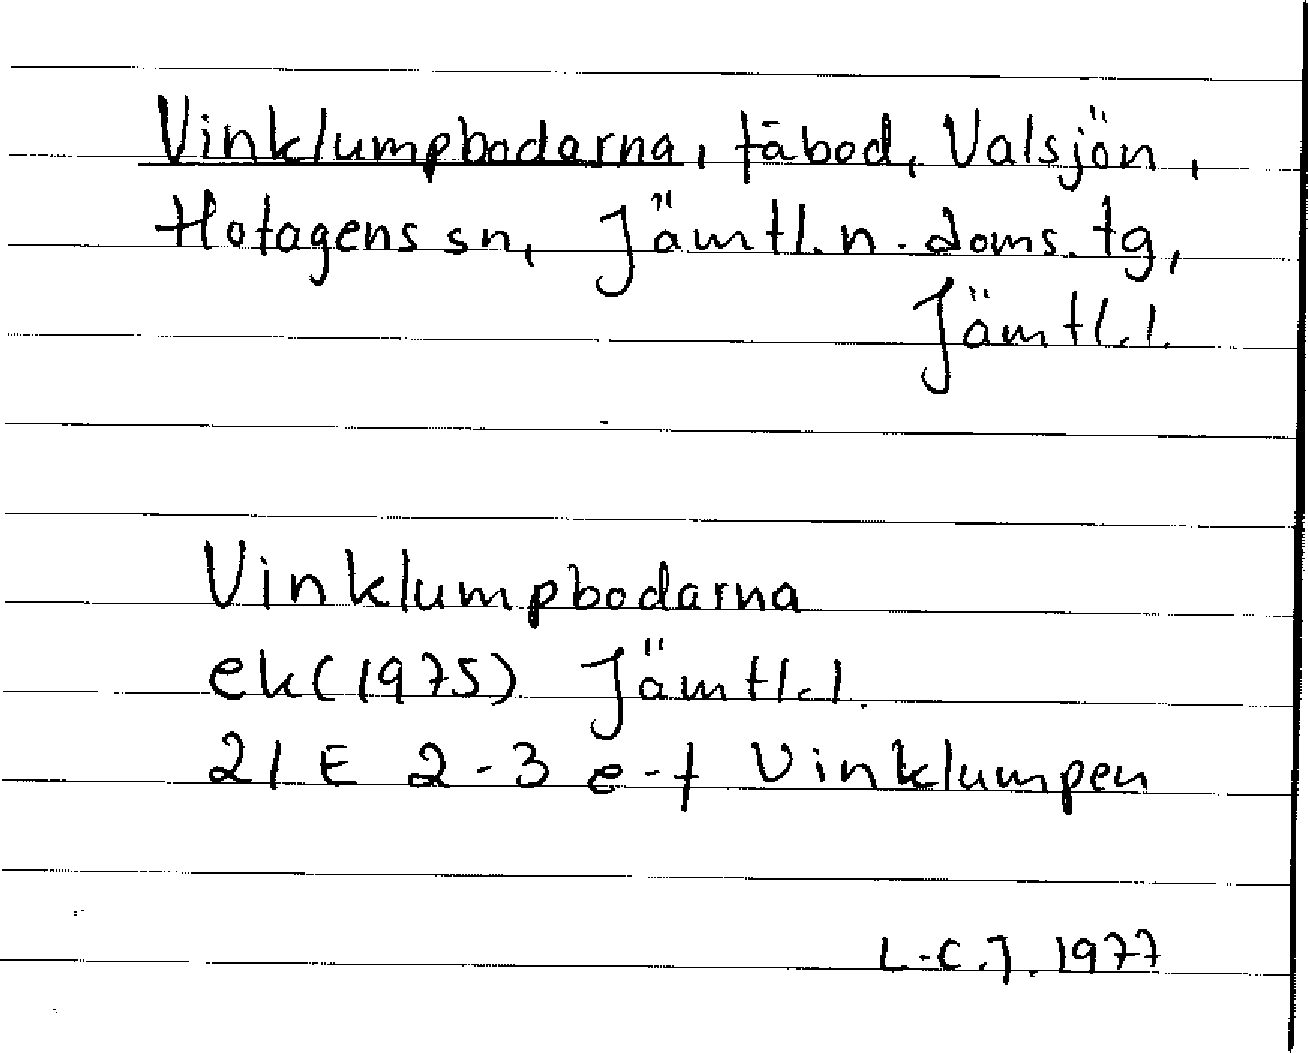 Vinklumpbodarna, fäbod, Valsjön,
Hotagens sn, Jämtl. n. doms. tg,
Jämtl. l.
Vinklumpbodarna
ek (1975) Jämtl. l.
21 E 2-3 e-f Vinklumpen
L-C.J. 1977